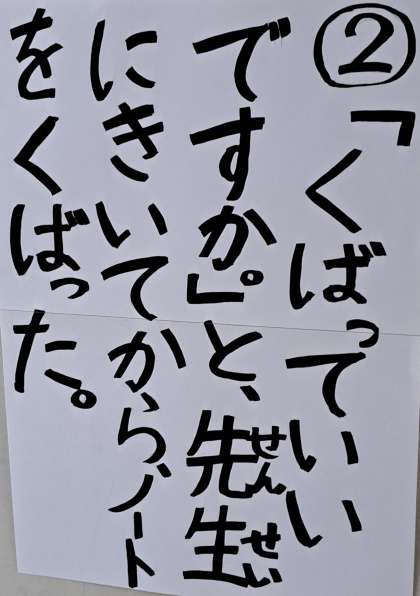 ②「くばっていい
ですか。」と、先生
せんせい
にきいてから、ノート
をくばった。